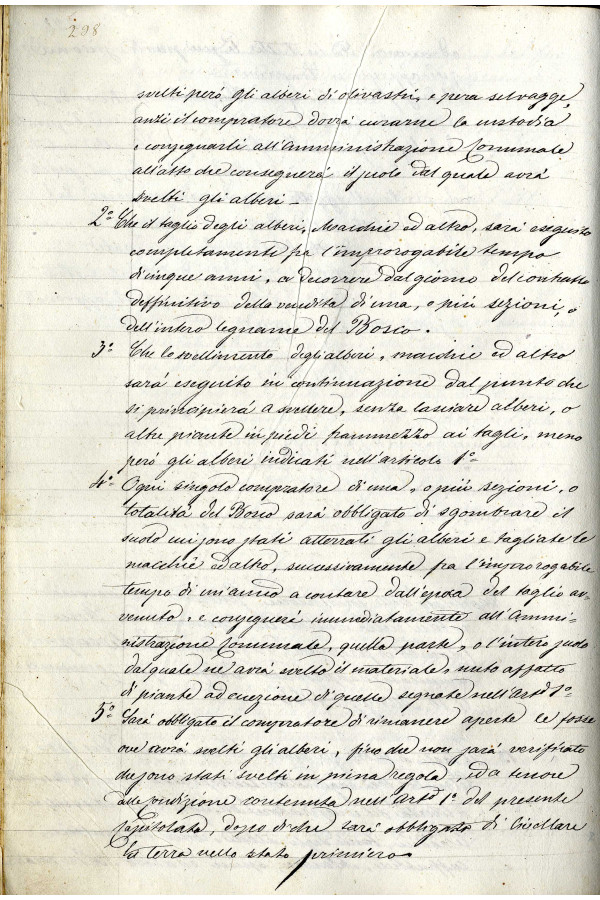 298
svelti però gli alberi di olivastri, e pera selvagge,
anzi il compratore dovrà curarne la custodia
e consegnarli all'Amministrazione Comunale
all'atto che consegnerà il suolo dal quale avrà
svelti gli alberi –
2° Che il taglio degli alberi, Macchie ed altro, sarà eseguito
completamente fra l'improrogabile tempo
di cinque anni, a decorrere dal giorno del contratto
deffinitivo della vendita di una, o più sezioni, o
dell'intero legname del Bosco.
3° Che lo svellimento degli alberi, macchie ed altro
sarà eseguito in continuazione dal punto che
si principierà a svellere, senza lasciare alberi, o
altre piante in piedi frammezzo ai tagli, meno
però gli alberi indicati nell'articolo 1°
4° Ogni singolo compratore di una, o più sezioni, o
totalità del Bosco sarà obbligato di sgombrare il
suolo cui sono stati atterrati gli alberi e tagliate le
macchie ed altro, successivamente fra l'improrogabile
tempo di un'anno a contare dall'epoca del taglio av=
venuto, e consegnerà immediatamente all'Ammi=
nistrazione Comunale, quella parte, o l'intero suolo
dal quale ne avrà svelto il materiale, nuto affatto
di piante ad eccezione di quelle segnate nell'Artº 1°
5° Sarà obbligato il compratore di rimanere aperte le fosse
ove avrà svelti gli alberi, fino che non sarà verificato
che sono stati svelti in piena regola, ed a tenore
alla condizione contenuta nell'Artº 1° del presente
Capitolato, dopo di che sarà obbligato di livellare
la terra nello stato primiero